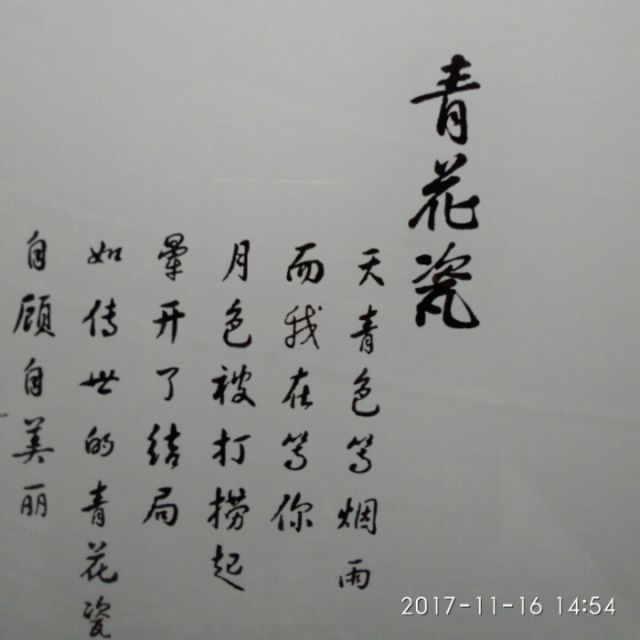 青花瓷
天青色等烟雨
而我在等你
月色被打捞起
晕开了结局
如传世的青花瓷
自顾自美丽
2017-11-16 14:54